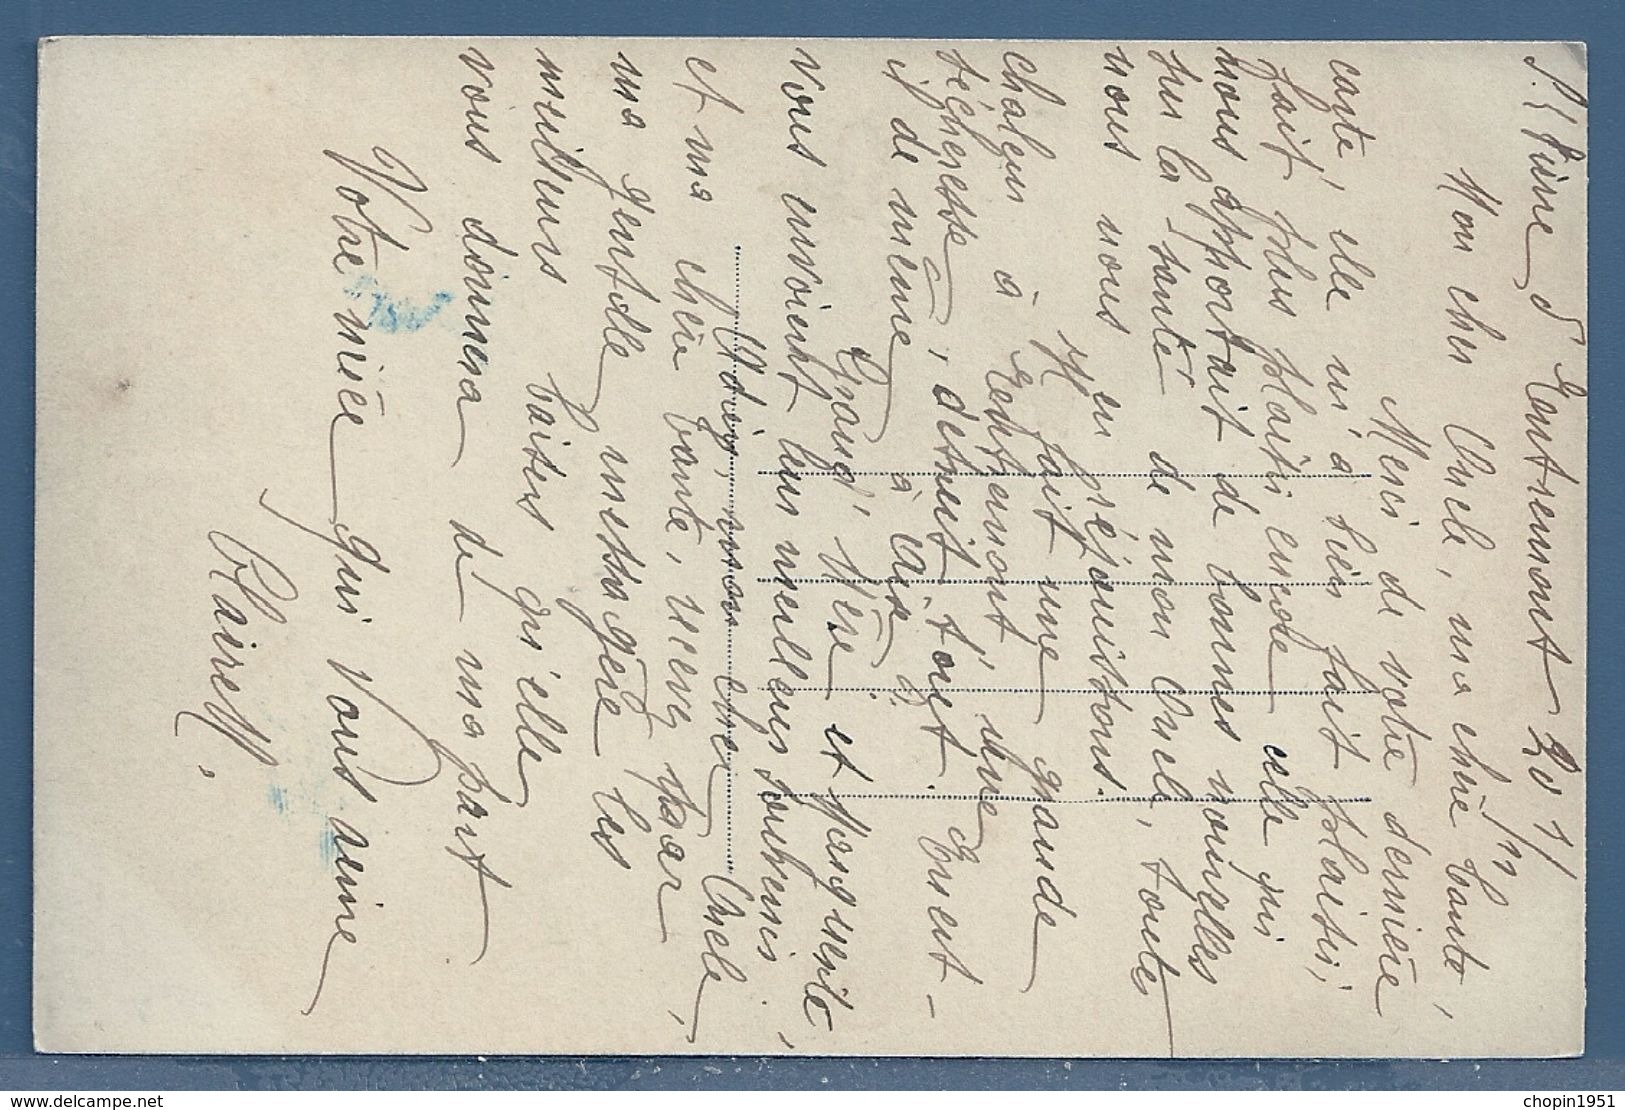 St Pierre d'Entremont 20 7/11
Mon cher Oncle, ma chère tante,
Merci de votre dernière
carte, elle m'a bien fait plaisir,
fait plus plaisir encore celle qui
nous apportait de bonnes nouvelles
sur la santé de mon Oncle, toutes
nous nous en réjouissons.
Il fait une grande
chaleur à Entremont, une
sécheresse, détruit tout.
il de même à
Grand'Mère et Marguerite,
vous envoient leurs meilleurs souvenirs
Adieu, mon cher Oncle,
et ma chère tante, recevez par
ma gentille messagère les
meilleurs baisers qu'elle
vous donnera de ma part
Votre nièce qui vous aime
Claire M.
delcampe.net
chopin1951